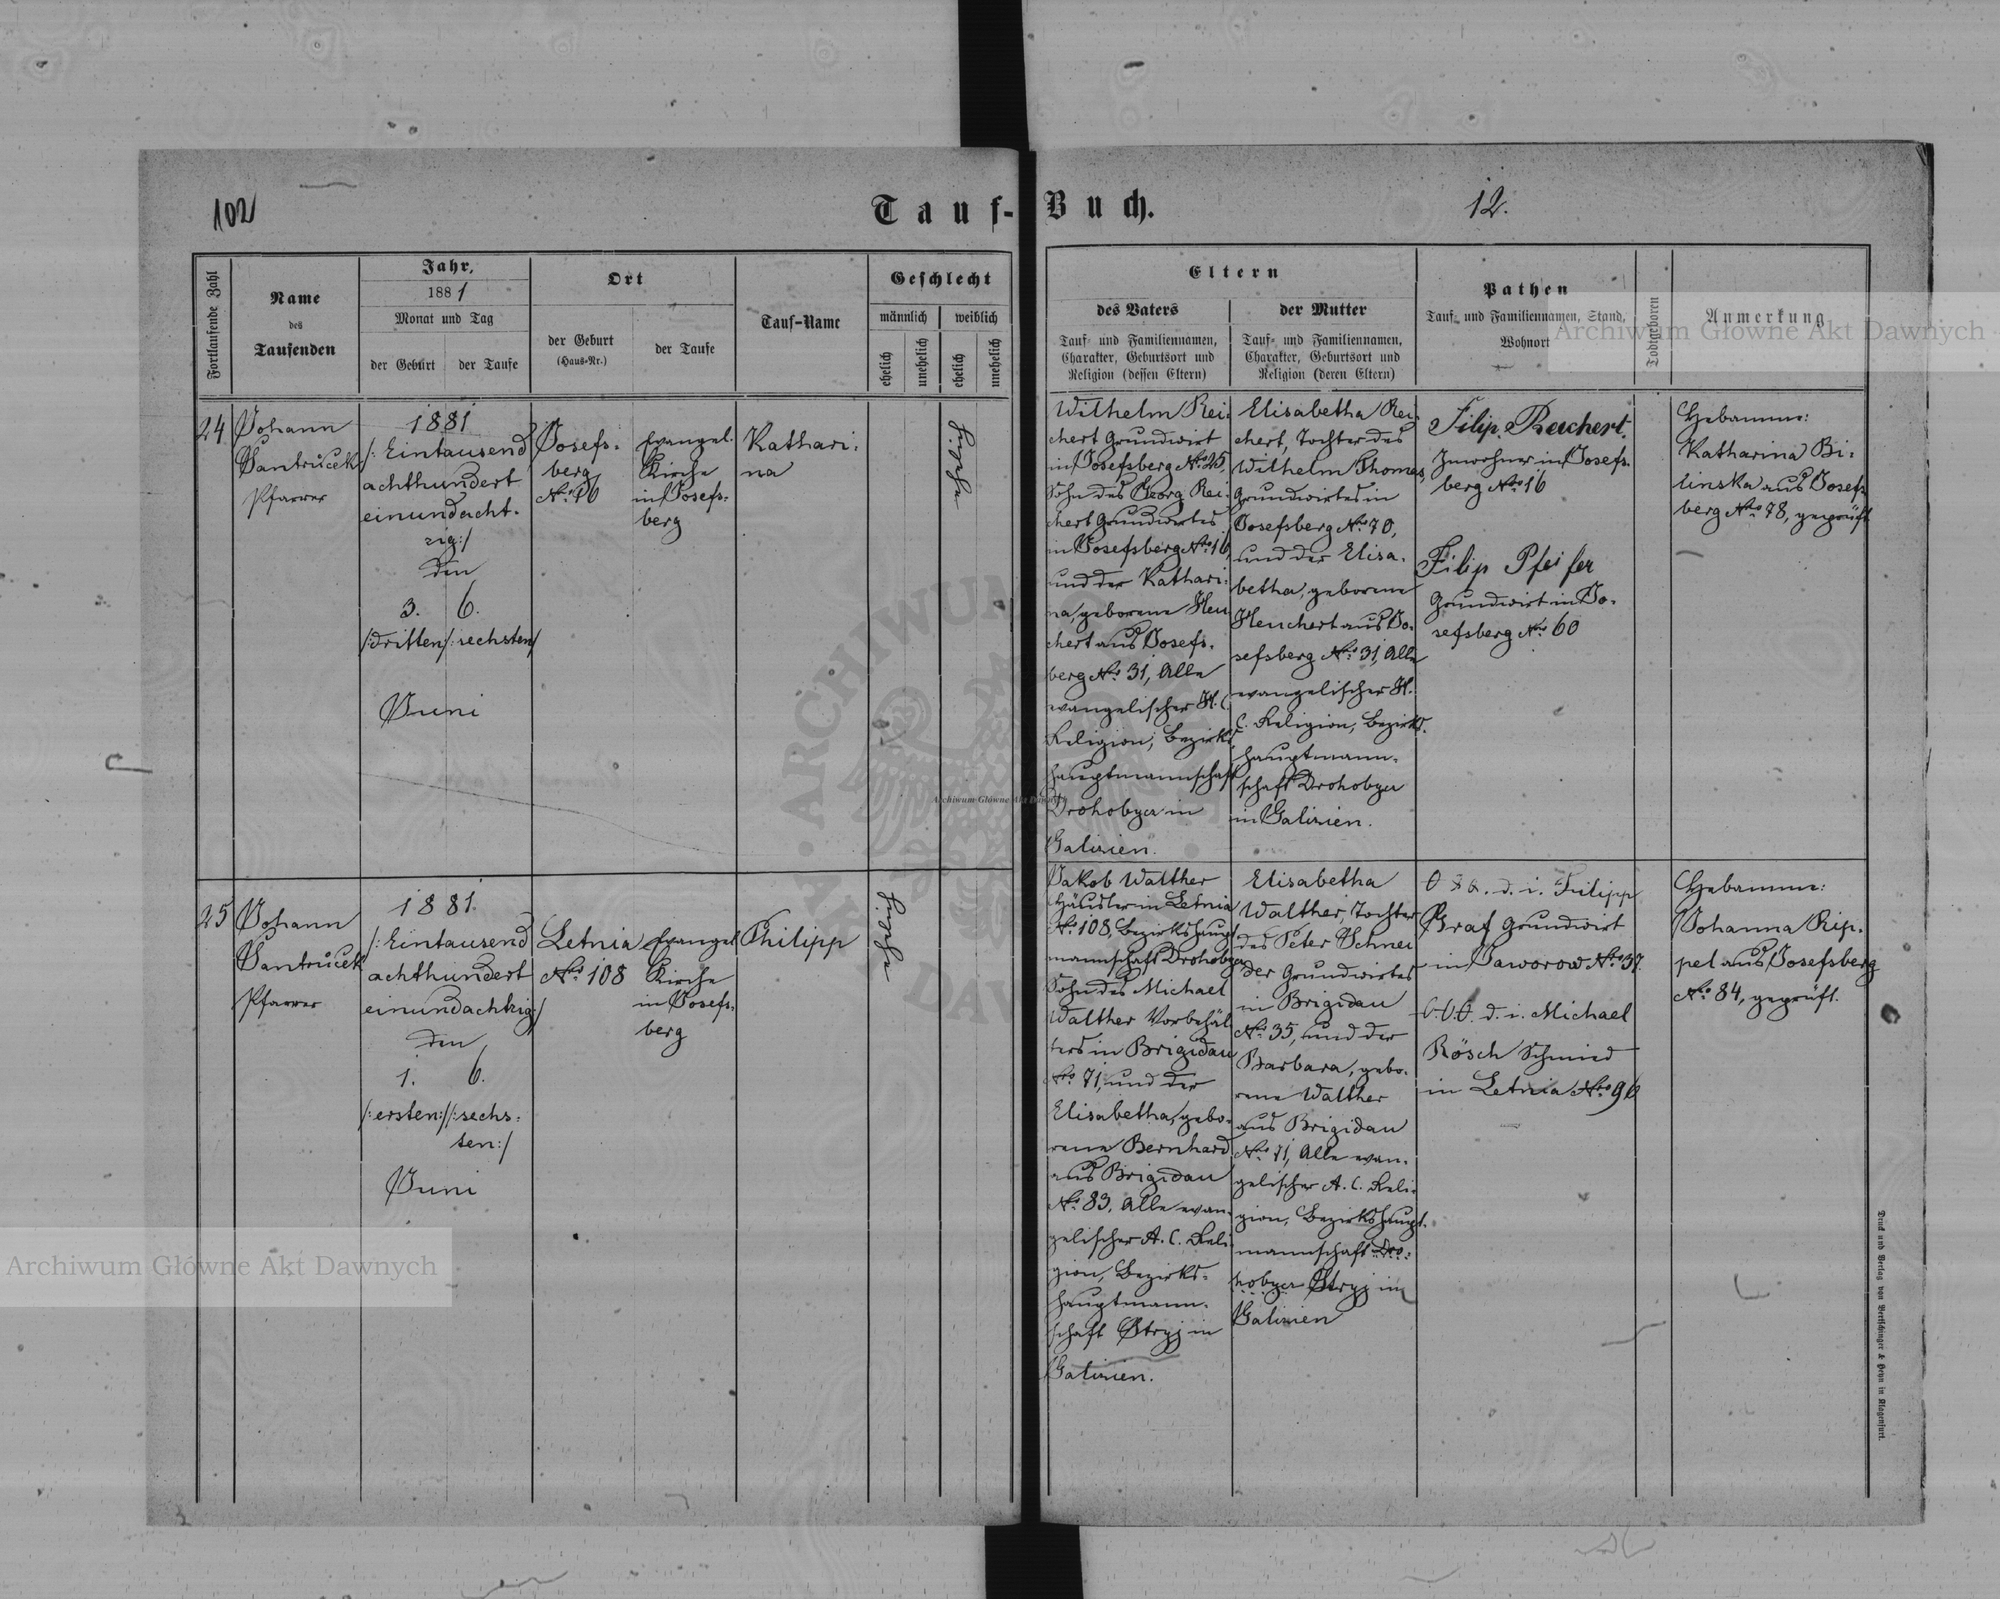 102
Tauf-Buch.
12.
Fortlaufende Zahl
Name
des
Taufenden
Jahr,
1881
Monat und Tag
der Geburt
der Taufe
Ort
der Geburt
(Haus-Nr.)
der Taufe
Tauf-Name
Geschlecht
männlich
weiblich
ehelich
unehelich
ehelich
unehelich
Eltern
des Vaters
Tauf- und Familiennamen,
Charakter, Geburtsort und
Religion (dessen Eltern)
der Mutter
Tauf- und Familiennamen,
Charakter, Geburtsort und
Religion (deren Eltern)
Pathen
Tauf- und Familiennamen, Stand,
Wohnort
Todtgeboren
Anmerkung
24
Johann
Jantrucek
Pfarrer
1881
/: Eintausend
achthundert
einundacht-
zig :/
den
3. 6.
/:dritten:/ /:sechsten:/
Juni
Josefs-
berg
No 16
Evangel.
Kirche
in Josefs-
berg
Kathari-
na
Wilhelm Rei-
chert Grundwirt
in Josefsberg No 25,
Sohn des Georg Rei-
chert Grundwirtes
in Josefsberg No 16,
und der Kathari-
na, geborene Heu
chert aus Josefs-
berg No 31, Alle
evangelischer H. C.
Religion, Bezirks
hauptmannschaft
Drohobycz in
Galizien.
Elisabetha Rei-
chert, Tochter des
Wilhelm Thomas,
Grundwirtes in
Josefsberg No 70,
und der Elisa-
betha, geborene
Heuchert aus Jo-
sefsberg No 31, Alle
evangelischer H.
C. Religion, Bezirks-
hauptmann-
schaft Drohobycz
in Galizien.
Filip Reichert.
Inwohner in Josefs-
berg No 16
Filip Pfeifer
Grundwirt in Jo-
sefsberg No 60
Hebamme:
Katharina Bi-
linska aus Josefs-
berg No 78, geprüft
25
Johann
Jantrucek
Pfarrer
1881.
/: Eintausend
achthundert
einundachtzig :/
den
1. 6.
/:ersten:/ /:sechs-
ten:/
Juni
Letnia
No 108
Evangel.
Kirche
in Josefs-
berg
Philipp
Jakob Walther
Häusler in Letnia
No 108, Bezirkshaupt-
mannschaft Drohobycz
Sohn des Michael
Walther Vorbehäl-
ters in Brigidau
No 71, und der
Elisabetha, gebo-
rene Bernhard
aus Brigidau
No 83, Alle evan-
gelischer A. C. Reli-
gion, Bezirks-
hauptmann-
schaft Stryj in
Galizien.
Elisabetha
Walther, Tochter
des Peter Schnei
der Grundwirtes
in Brigidau
No 35, und der
Barbara, gebo-
rene Walther
aus Brigidau
No 71, Alle evan-
gelischer A. C. Reli-
gion, Bezirkshaupt-
mannschaft Dro-
hobycz Stryj in
Galizien
d. i. Filipp
Graf Grundwirt
in Jaworow No 37.
d. i. Michael
Rösch Schmied
in Letnia No 96
Hebamme:
Johanna Rip-
pel aus Josefsberg
No 84, geprüft.
Druck und Verlag von Bertschinger & Heyn in Klagenfurt.
Archiwum Główne Akt Dawnych
Archiwum Główne Akt Dawnych
Archiwum Główne Akt Dawnych